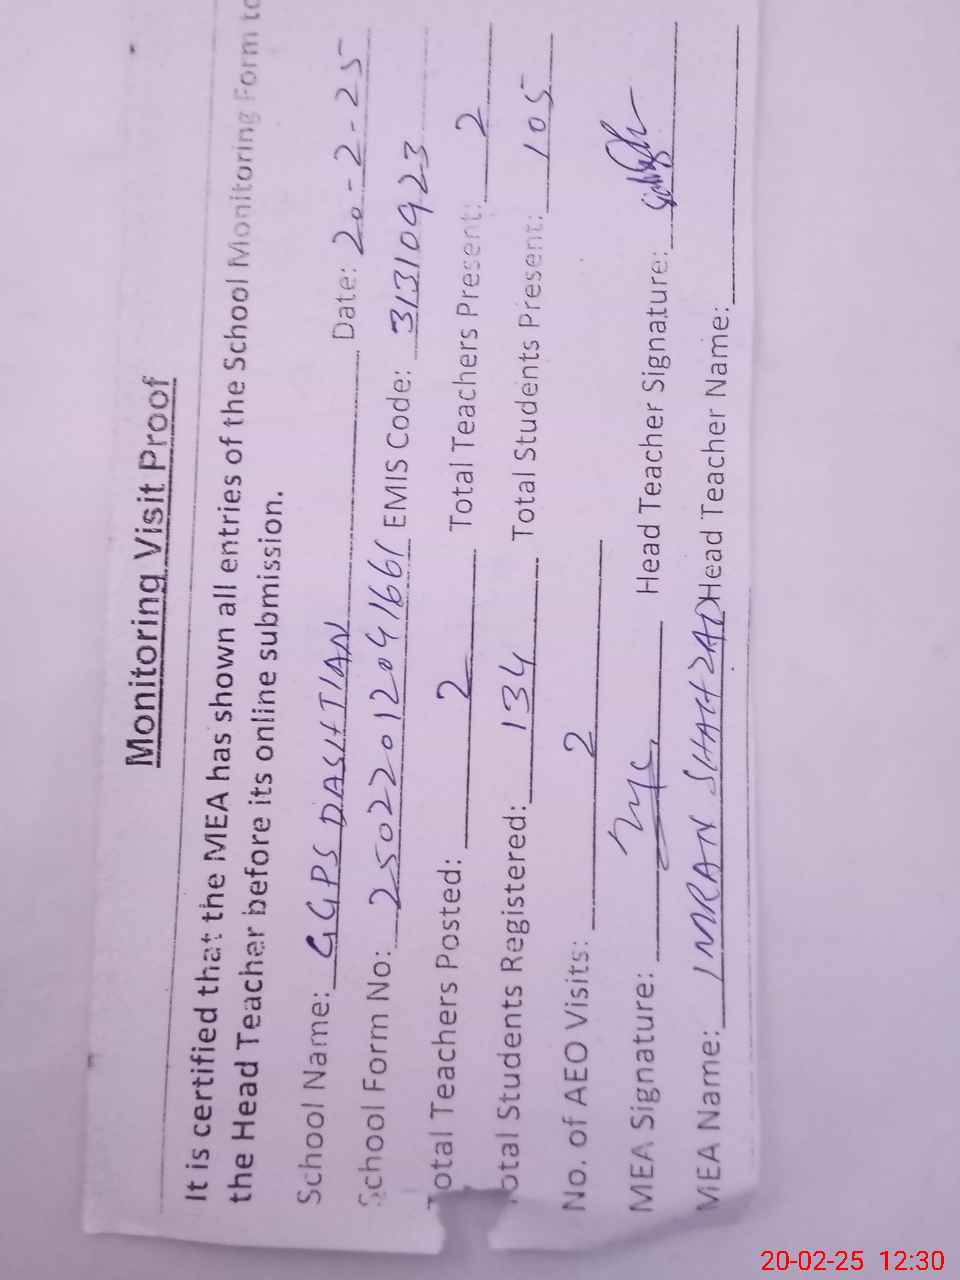 Monitoring Visit Proof
It is certified that the MEA has shown all entries of the School Monitoring Form to
the Head Teacher before its online submission.
School Name: GGPS DASHTIAN Date: 20-2-25
School Form No: 25022012041661 EMIS Code: 31310923
Total Teachers Posted: 2 Total Teachers Present: 2
Total Students Registered: 134 Total Students Present: 105
No. of AEO Visits: 2
MEA Signature: Head Teacher Signature:
MEA Name: IMRAN SHAHZAD Head Teacher Name:
20-02-25 12:30